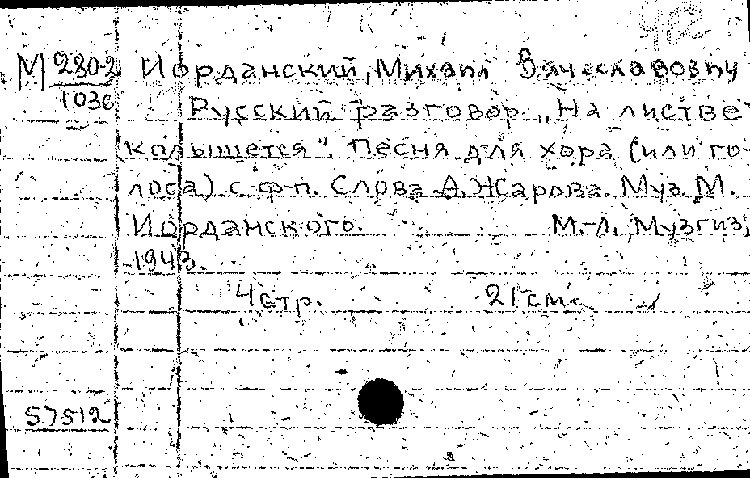 М 280-2 Иорданский, Михаил Вячеславович
1036 Русский разговор „На листве
колышется". Песня для хора (или го-
лоса) с ф-п. Слова А. Жарова. Муз. М.
Иорданского. М.-Л. Музгиз,
1943.
4 стр. 21 см
57512